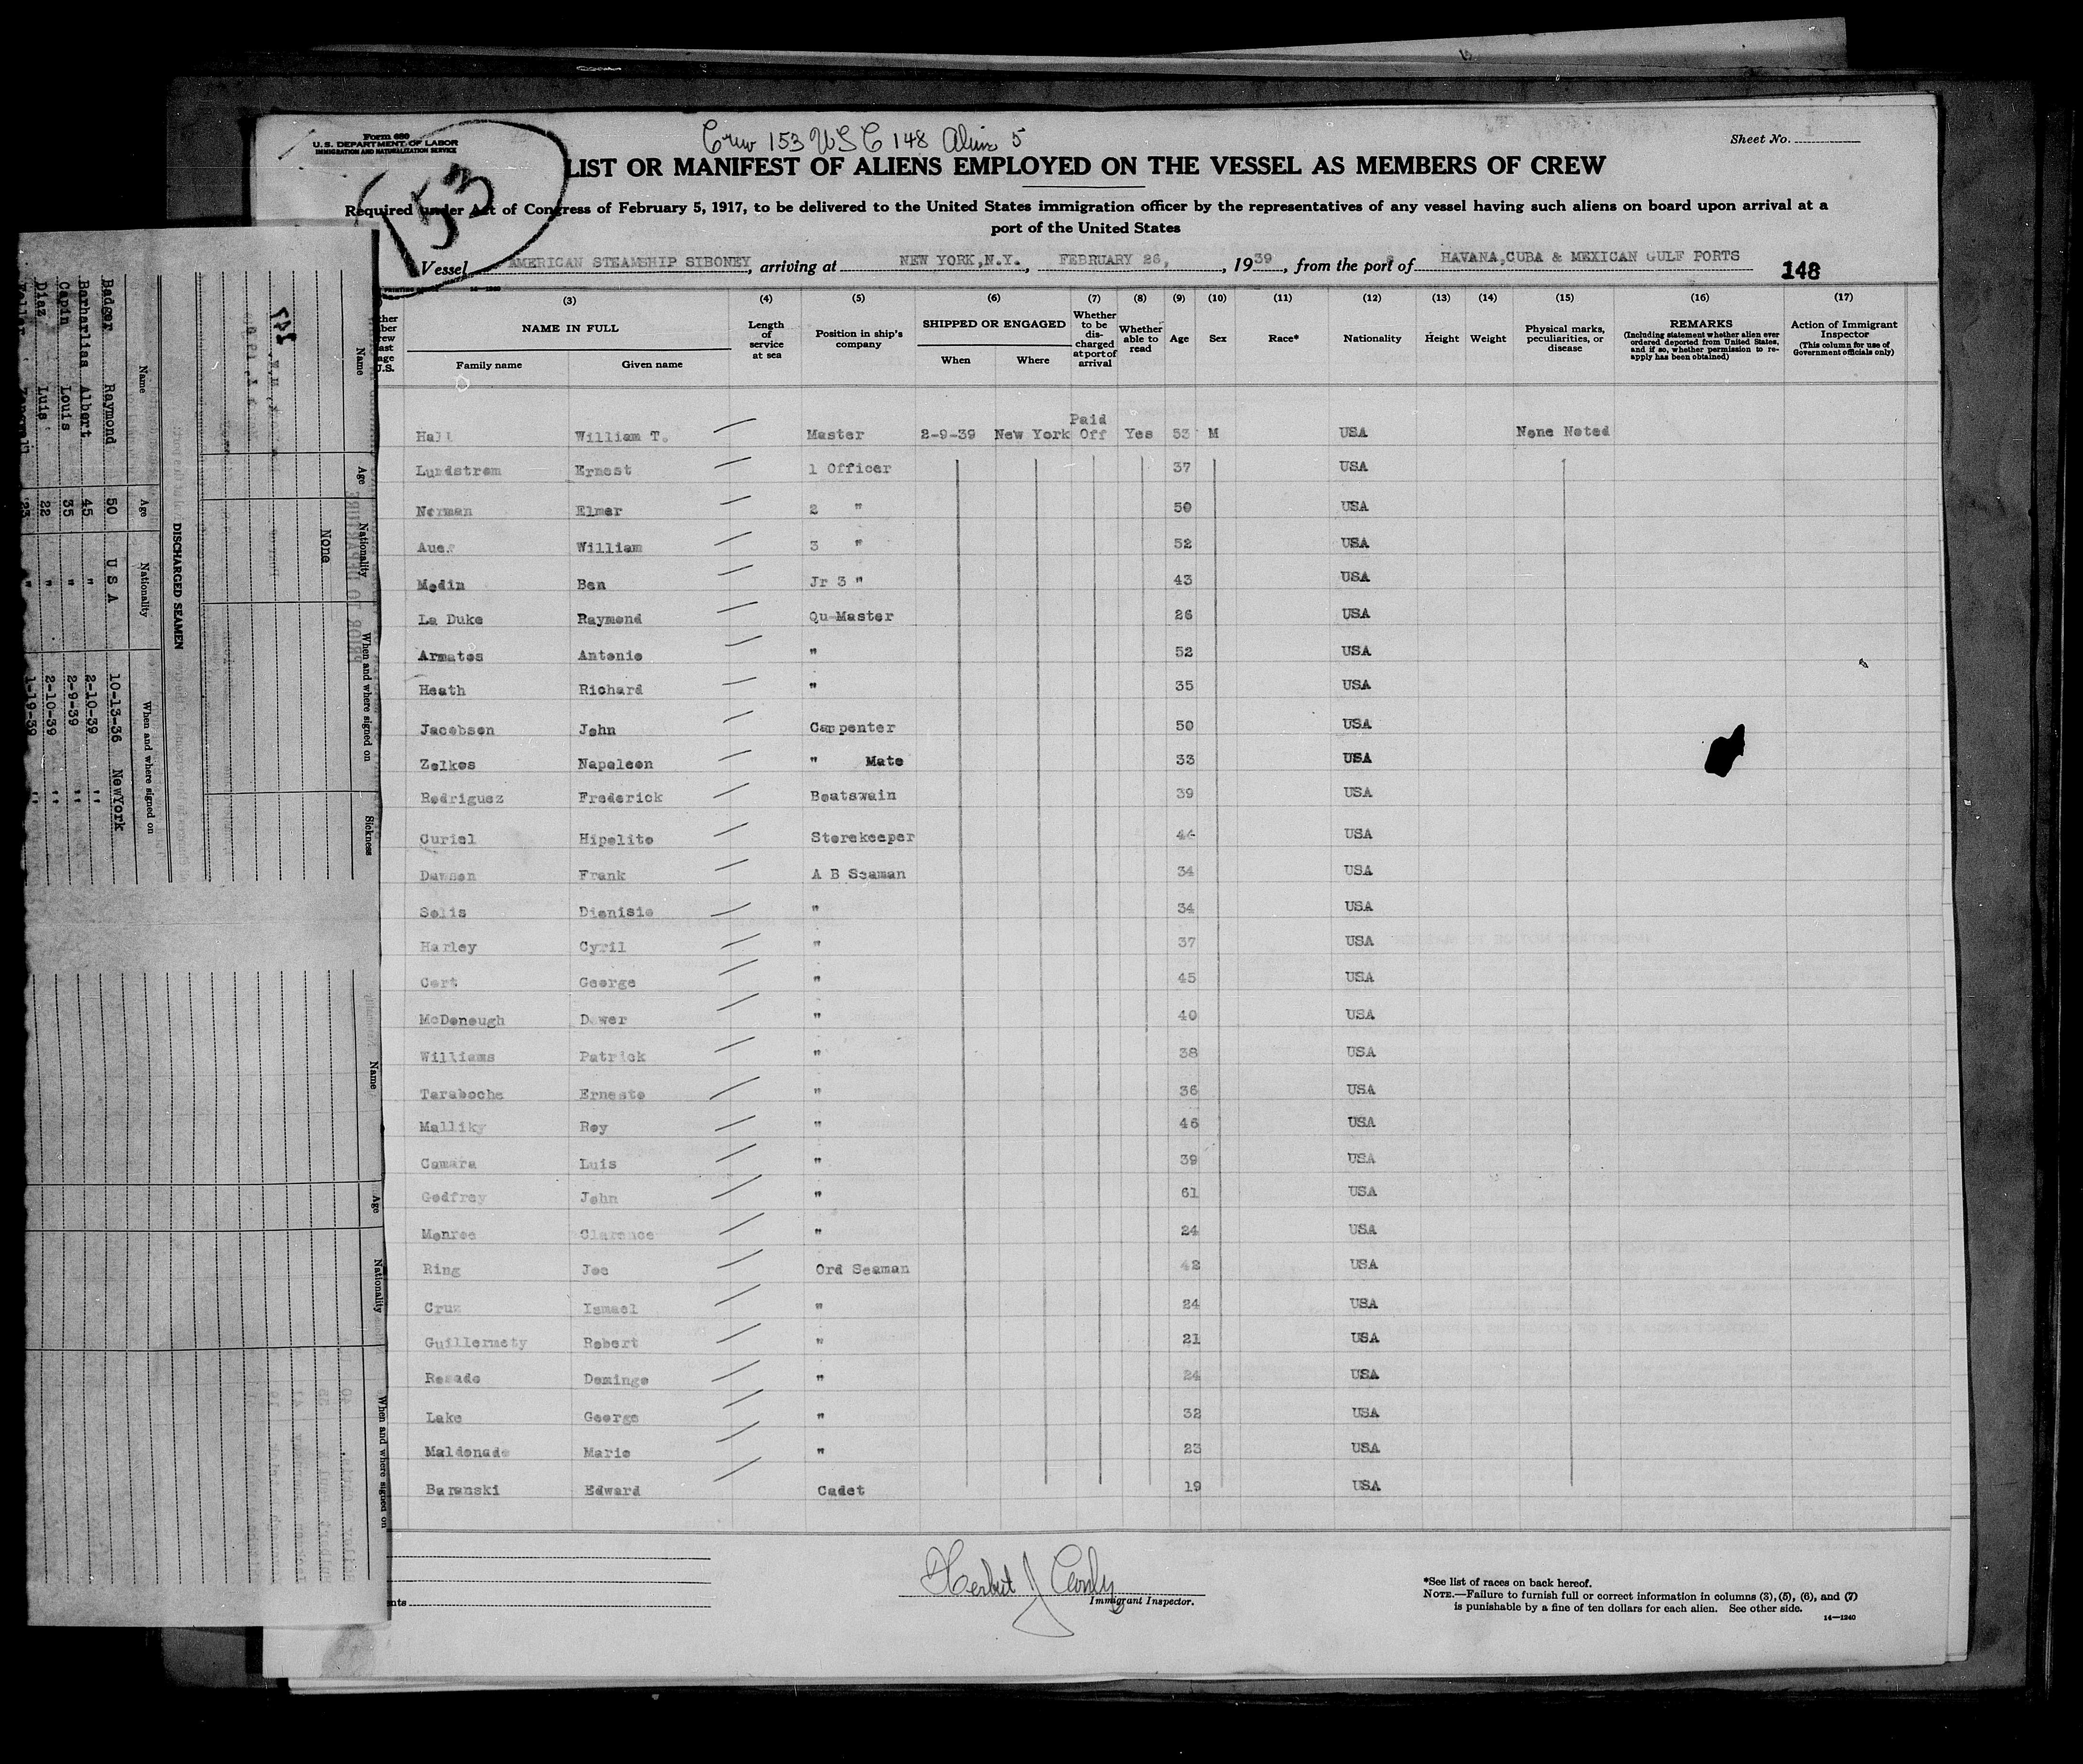 Form 680
U.S. DEPARTMENT OF LABOR
IMMIGRATION AND NATURALIZATION SERVICE
Crew 153 USC 148 Alien 5
Sheet No.
153
LIST OR MANIFEST OF ALIENS EMPLOYED ON THE VESSEL AS MEMBERS OF CREW
Required under Act of Congress of February 5, 1917, to be delivered to the United States immigration officer by the representatives of any vessel having such aliens on board upon arrival at a
port of the United States
Vessel AMERICAN STEAMSHIP SIBONEY, arriving at NEW YORK,N.Y., FEBRUARY 26, , 1939, from the port of HAVANA,CUBA & MEXICAN GULF PORTS
148
(3) (4) (5) (6) (7) (8) (9) (10) (11) (12) (13) (14) (15) (16) (17)
NAME IN FULL
Family name Given name
Length of service at sea
Position in ship's company
SHIPPED OR ENGAGED
When Where
Whether to be discharged at port of arrival
Whether able to read
Age Sex Race* Nationality Height Weight
Physical marks, peculiarities, or disease
REMARKS
(Including statement whether alien ever ordered deported from United States, and if so, whether permission to reapply has been obtained)
Action of Immigrant Inspector
(This column for use of Government officials only)
Hall William T. Master 2-9-39 New York Paid Off Yes 53 M USA None Noted
Lundstrom Ernest 1 Officer 37 USA
Norman Elmer 2 " 50 USA
Auer William 3 " 52 USA
Medin Ben Jr 3 " 43 USA
La Duke Raymond Qu-Master 26 USA
Armatos Antonio " 52 USA
Heath Richard " 35 USA
Jacobsen John Carpenter 50 USA
Zelkos Napoleon " Mate 33 USA
Rodriguez Frederick Boatswain 39 USA
Curiel Hipolito Storekeeper 44 USA
Dawson Frank A B Seaman 34 USA
Solis Dionisio " 34 USA
Harley Cyril " 37 USA
Cort George " 45 USA
McDonough " 40 USA
Williams Patrick " 38 USA
Taraboche Ernesto " 36 USA
Malliky Roy " 46 USA
Camara Luis " 39 USA
Godfrey John " 61 USA
Monroe Clarence " 24 USA
Ring Joe Ord Seaman 42 USA
Cruz Ismael " 24 USA
Guillermety Robert " 21 USA
Rosado Domingo " 24 USA
Lake George " 32 USA
Maldonado Mario " 23 USA
Baranski Edward Cadet 19 USA
Immigrant Inspector.
*See list of races on back hereof.
NOTE.—Failure to furnish full or correct information in columns (3), (5), (6), and (7)
is punishable by a fine of ten dollars for each alien. See other side.
14—1240
Name Age Nationality When and where signed on Sickness
None
DISCHARGED SEAMEN
Name Age Nationality When and where signed on
Badger Raymond 50 U S A 10-13-36 NewYork
Barharlias Albert 45 " 2-10-39 "
Capin Louis 35 " 2-9-39 "
Diaz Luis 22 " 2-10-39 "
1-19-39 "
Name Age Nationality When and where signed on